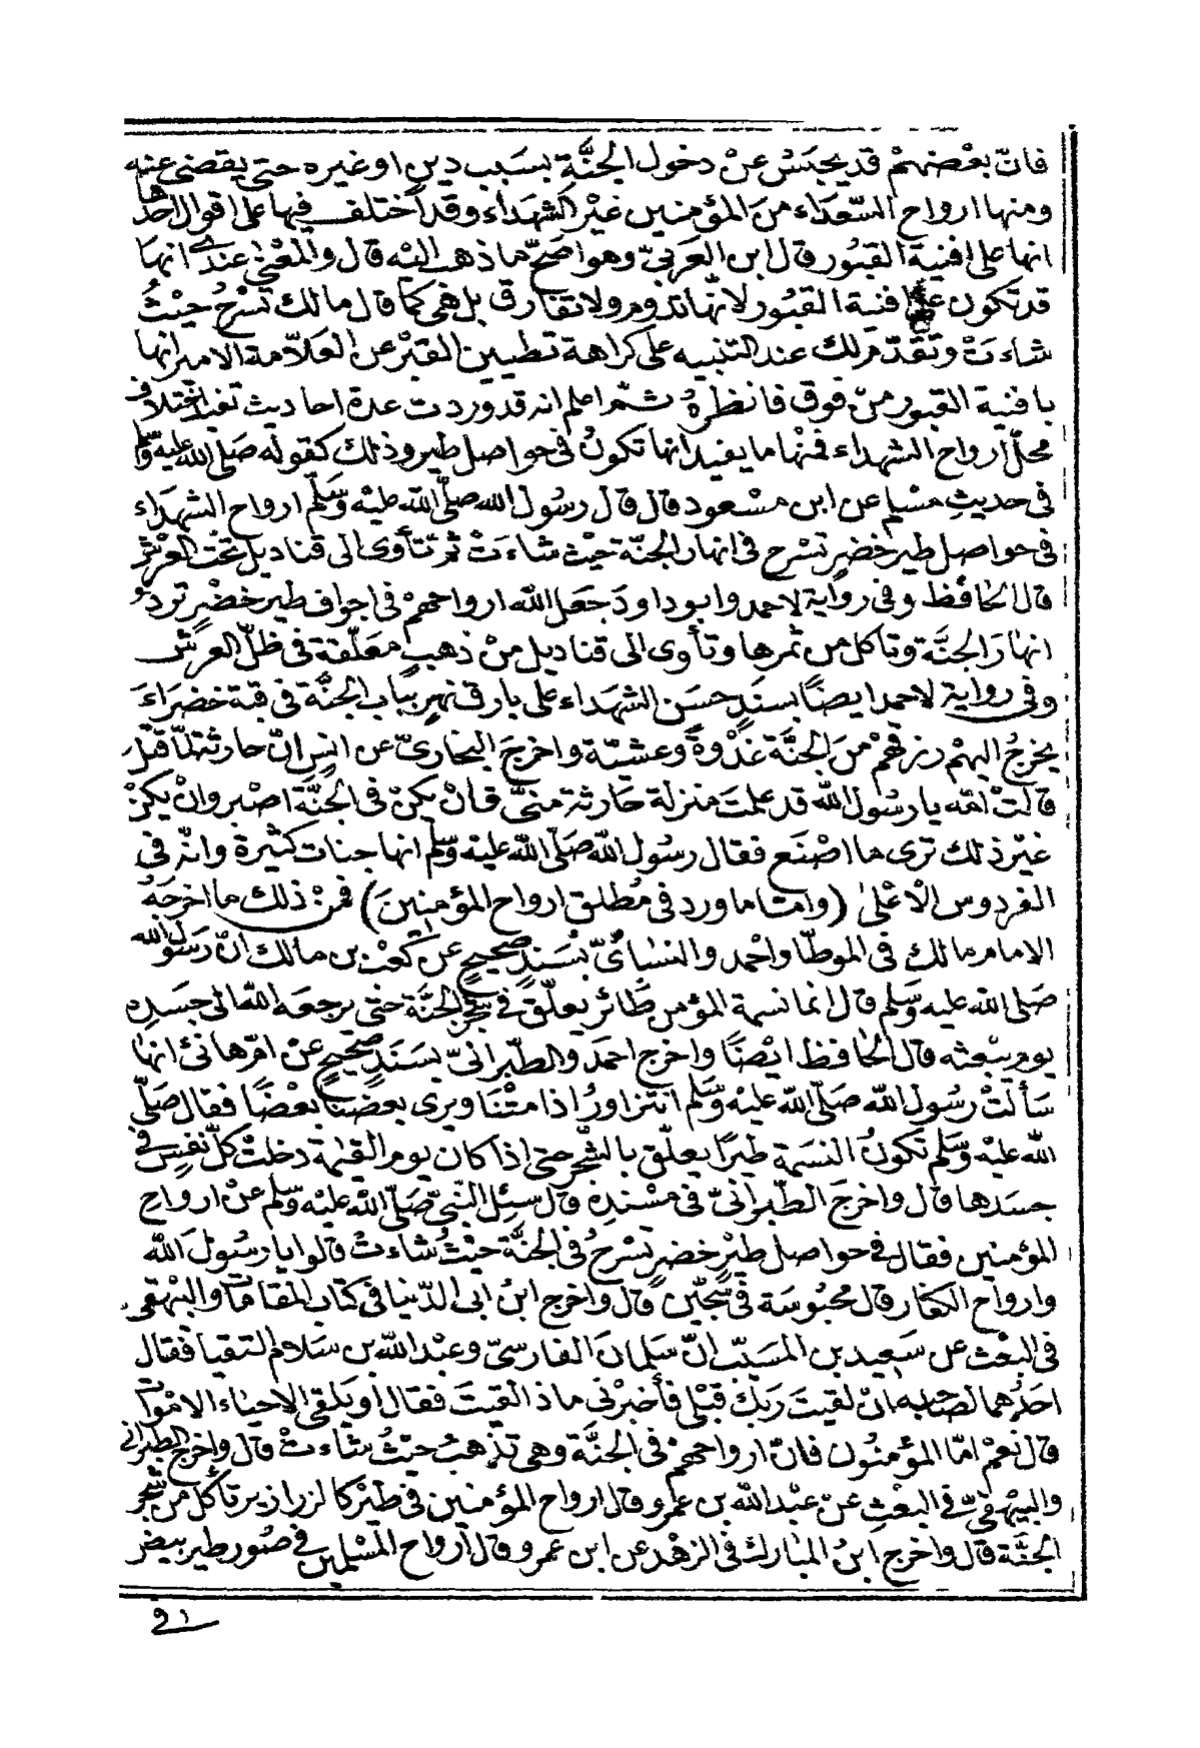 فانّ بعْضهمْ قد يحبَسُ عنْ دخول الجنَّةِ بسَبب دينٍ او غيره حتى يقضى عنه
ومنها ارواح السّعَدَاء منَ المؤمنين غيْر الشهدَاء وقد اختلف فيها على اقوال احدها
انها على افنية القبُور قال ابن العَربىّ وهو اصَحّ ما ذهب اليْه قال والمعْنى عندى انها
قد تكون على افنية القبُور لا انّها تدوم ولا تفارق بل هى كما قال مالك تسْرحُ حيْثُ
شاءَتْ وتقدّم لك عند التنبيه على كراهة تطيين القبْر عن العَلاّمة الامير انها
بافنية القبور منْ فوق فانظرهُ ثمّ اعلم انه قد وردت عدة احاديث تفيد اختلاف
محلّ ارواح الشهداء فمنْها ما يفيد انها تكونُ فى حواصل طير وذلك كقوله صَلى الله عليه وسلم
فى حديثِ مسْلم عن ابن مسْعود قال قال رسُول الله صلّى الله عليْه وَسَلّم ارواح الشهدَاء
فى حواصل طير خضرٍ تسْرح فى انهار الجنّة حيْث شاءَتْ ثمّ تأوى الى قناديل تحْت العرْش
قال الحافظ وفى رواية لاحمد وابو داودَ جعَل الله ارواحهمْ فى اجواف طيرٍ خضْرٍ تردُ
انهارَ الجنَّة وتاكل من ثمرها وتأوى الى قناديل منْ ذهبٍ معَلّقة فى ظلّ العرش
وفى رواية لاحمد ايضًا بسنَدٍ حسَن الشهدَاء على بارق نهرٍ بباب الجنَّة فى قبّة خضرَاءَ
يخرجُ اليهمْ رزقهمْ منَ الجنَّة غدْوةً وعشيّة واخرجَ البخارىّ عن انسٍ انّ حارثة لمّا قتل
قالتْ امّه يا رسُول الله قد علمتَ منزلة حَارثة منىّ فانْ يكنْ فى الجنَّة اصْبر وانْ يكنْ
غيْر ذلك ترى ما اصْنَع فقال رسُول الله صَلّى الله عليْه وسَلّم انها جنات كثيرة وانّه فى
الفردوس الاعْلى (وامّا ما ورد فى مُطلق ارواح المؤمنِينَ) فمنْ ذلك ما اخرجَهُ
الامام مالك فى الموطّا واحْمد والنسَائىّ بسَندٍ صحيحٍ عن كعْب بن مالك انّ رسُول الله
صَلى الله عليه وَسَلم قال انما نسمة المؤمن طَائر يعلّق فى شجر الجنَّة حتى يرجعَه اللهُ الى جسَدِه
يوم يبْعثه قال الحافظ ايْضًا واخرج احمدَ والطّبرانىّ بسَنَدٍ صحيحٍ عن امّ هانئ انها
سَألتْ رسُول الله صَلّى الله عليْه وسَّلم انتزاورُ اذا متْنا ويرى بعضنا بعْضًا فقال صَلّى
الله عليْه وسَلّم تكونُ النسَمة طيرًا يعلّق بالشّجر حتى اذا كان يوم القيٰمة دخلتْ كلّ نفسٍ فى
جسَدها قال واخرجَ الطّبرانىّ فى مسْندِه قال سئِل النّبىّ صَلّى اللهُ عليْه وسَلّم عنْ ارواح
المؤمنين فقال فى حواصل طيْرٍ خضرٍ تسْرحُ فى الجنَّة حيْثُ شاءتْ قالوا يا رسُولَ الله
وارواح الكفار قال محبُوسَة فى سجّين قال واخرج ابنُ ابى الدّنيا فى كتاب المقامات والبيْهقىّ
فى البعْث عن سَعِيد بن المسَيّب انّ سَلمانَ الفارسىّ وعبْد الله بن سَلام التقيا فقال
احدُهما لصاحبه انْ لقيتَ ربّكَ قبْلى فأخبرْنى ماذا لقيتَ فقال أو يَلقى الاحيَاء الامْواتَ
قال نعمْ امّا المؤمنُون فانّ ارواحهمْ فى الجنَّة وهى تذهبُ حيْثُ شاءتْ قال واخرج الطبرانى
والبيْهقىّ فى البعْثِ عنْ عبْد الله بن عمْرو قال ارواح المؤمنين فى طيْر كالزرازير تأكل من شجر
الجنَّة قال واخرج ابنُ المبَارك فى الزهْد عن ابن عمرو قال ارْواح المسْلمين فى صُور طير بيضٍ
٩١